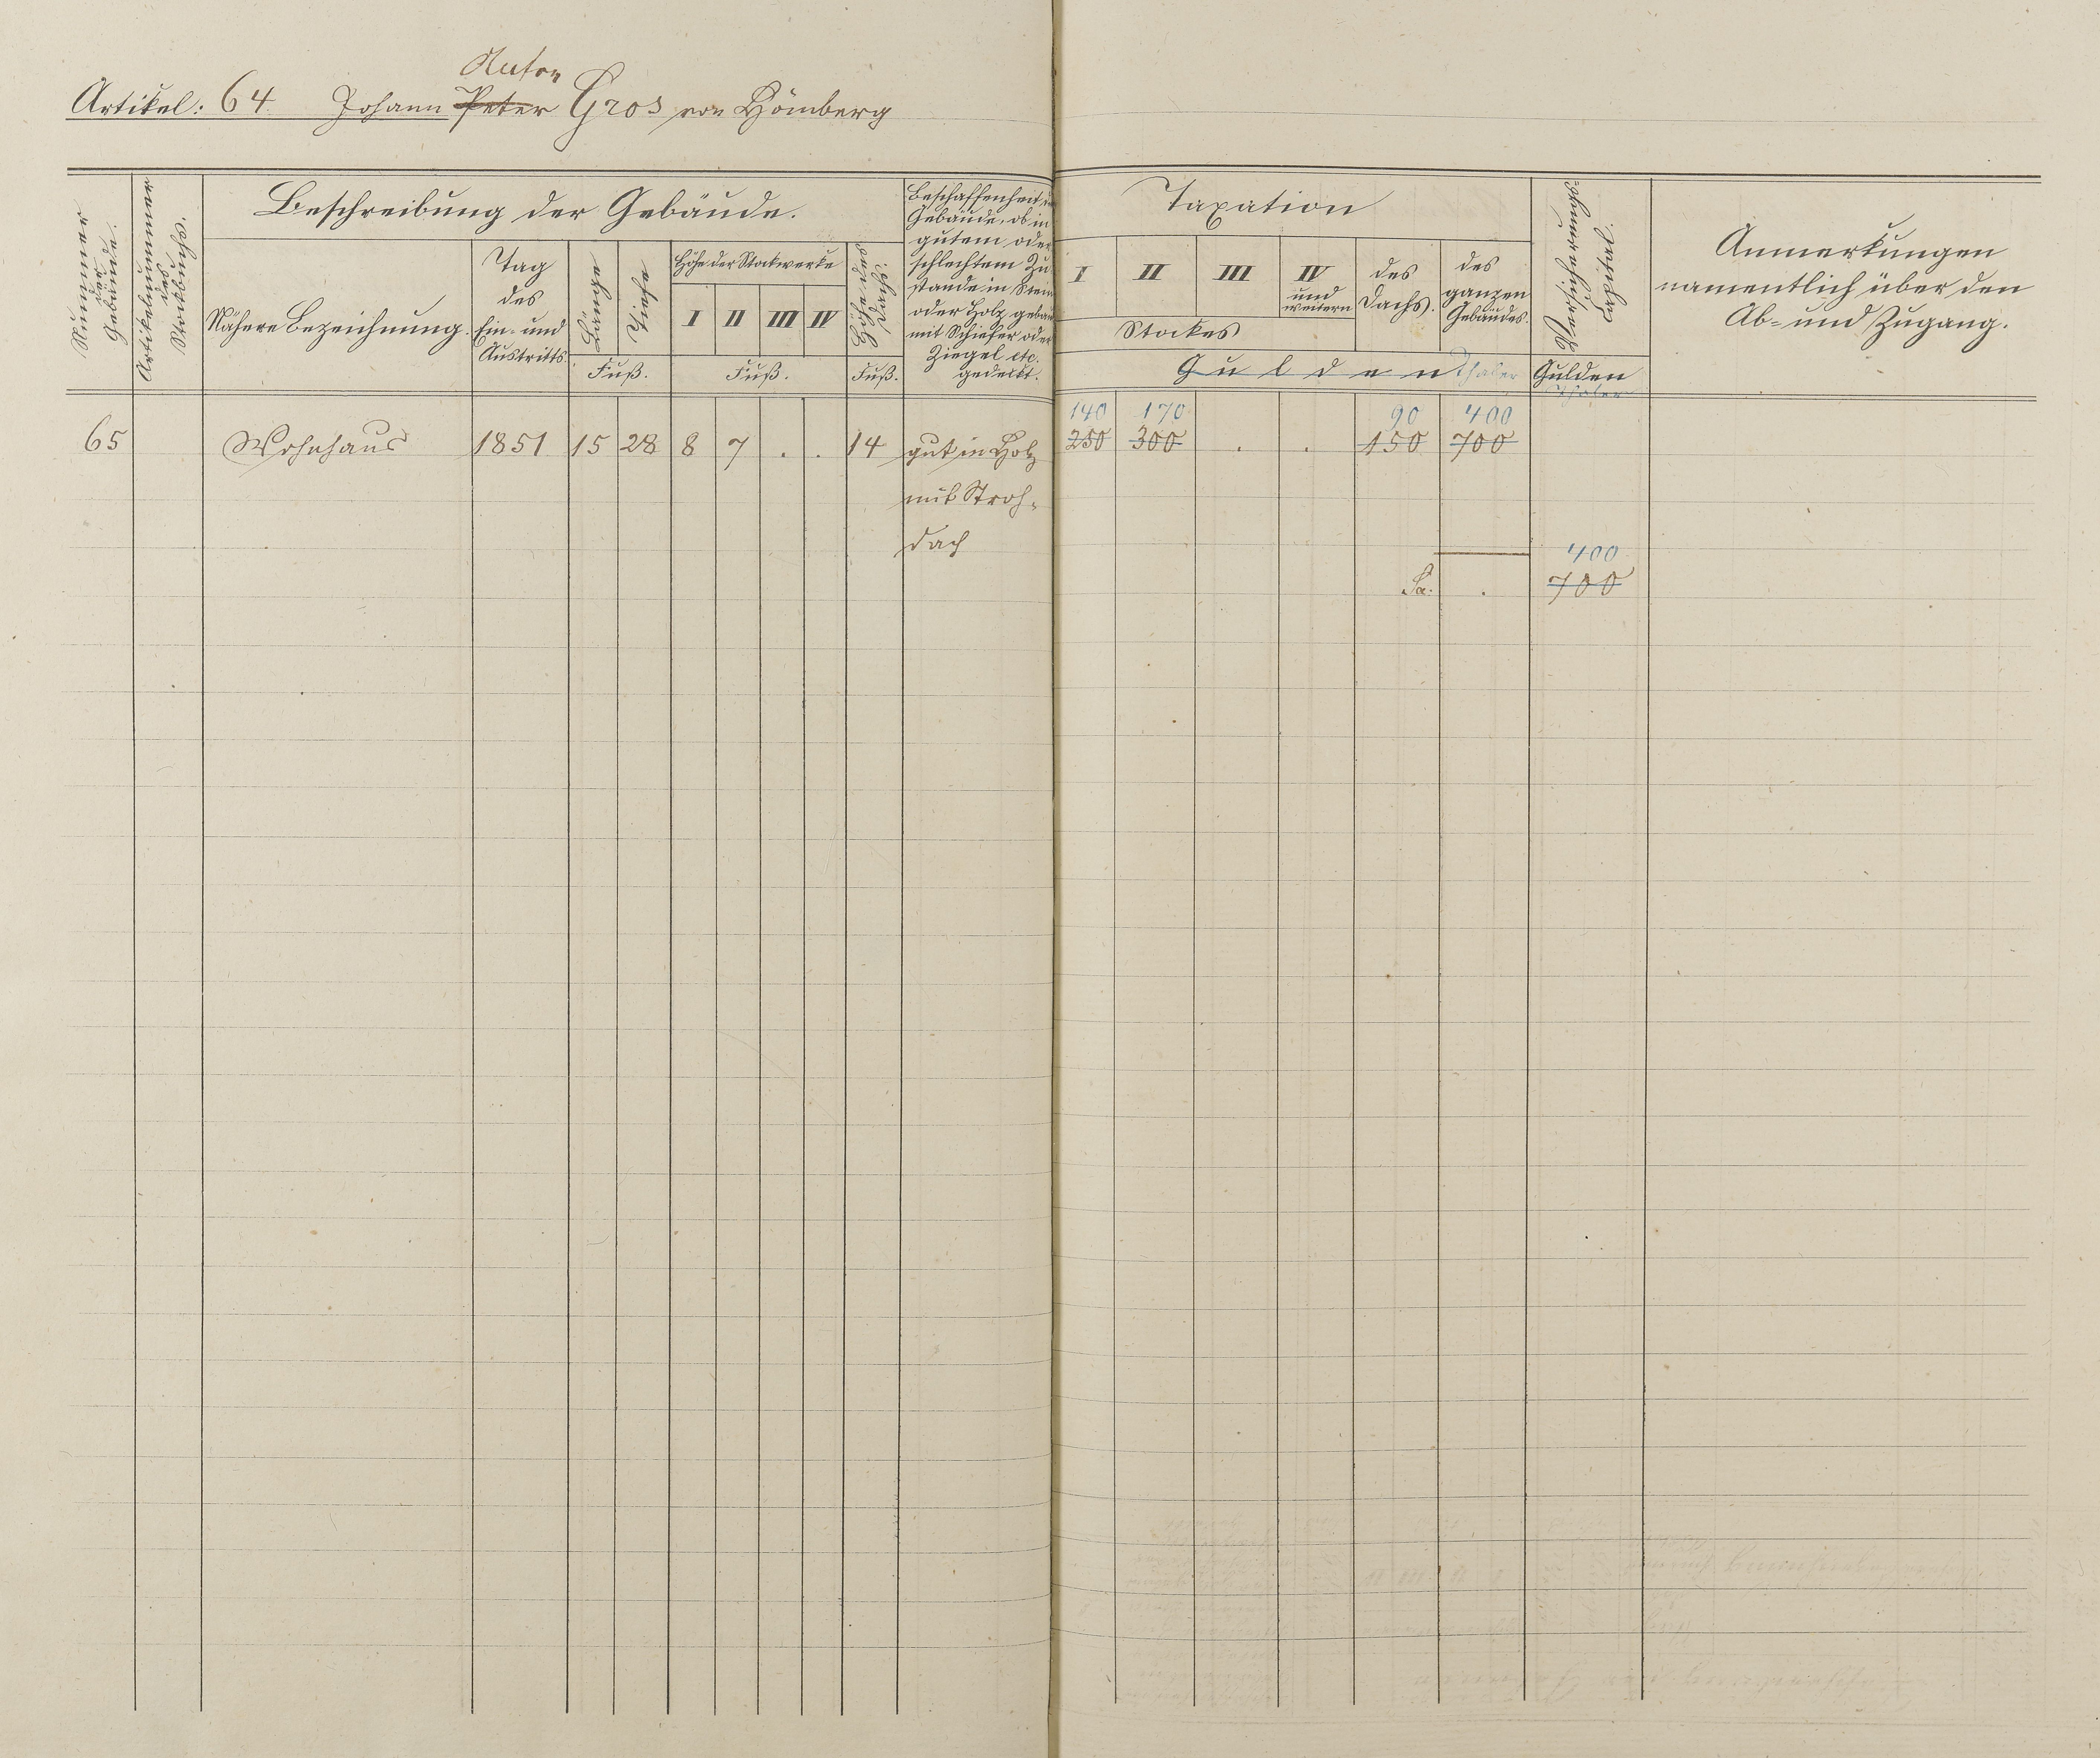 Anton
Artikel: 64 Johann Peter Gros von Hömberg
Nummer der Gebäude.
Artikelnummer des Stockbuchs.
Beschreibung der Gebäude.
Nähere Bezeichnung.
Tag des Ein- und Austritts
Länge
Tiefe
Fuß.
Höhe der Stockwerke
I II III IV
Fuß.
Höhe des Dachs.
Fuß.
Beschaffenheit der
Gebäude, ob in
gutem oder
schlechtem Zu
stande in Stein
oder Holz gebaut
mit Schiefer oder
Ziegel etc.
gedeckt.
Taxation
I II III IV und weitern
Stockes
des Dachs.
des ganzen Gebäudes.
Gulden Thaler
Versicherungs
Capital.
Gulden
Thaler
Anmerkungen
namentlich über den
Ab- und Zugang.
140 170 90 400
65 Wohnhaus 1851 15 28 8 7 . . 14 gut in Holz 250 300 . . 150 700
mit Stroh-
dach
400
Sa. . 700